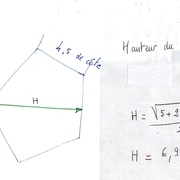 4,5 de côté
H
Hauteur du
H = √5+2
H = 6,9